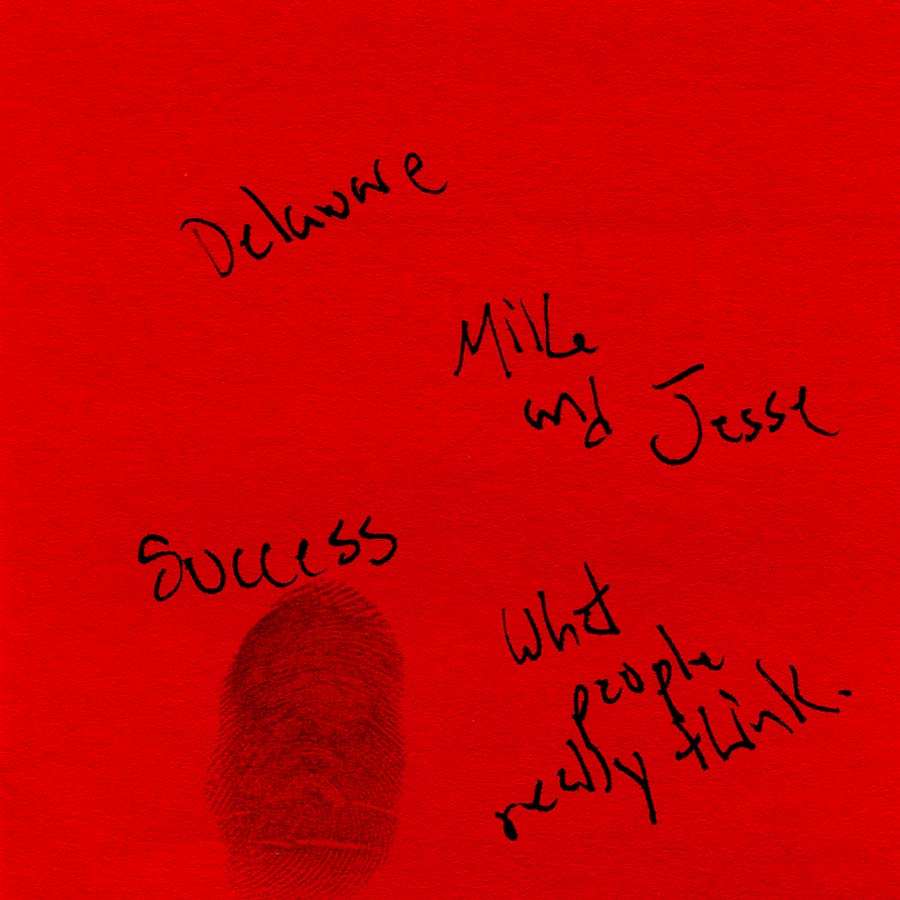 Delaware
Mike
and Jesse
Success
What
people
really think.